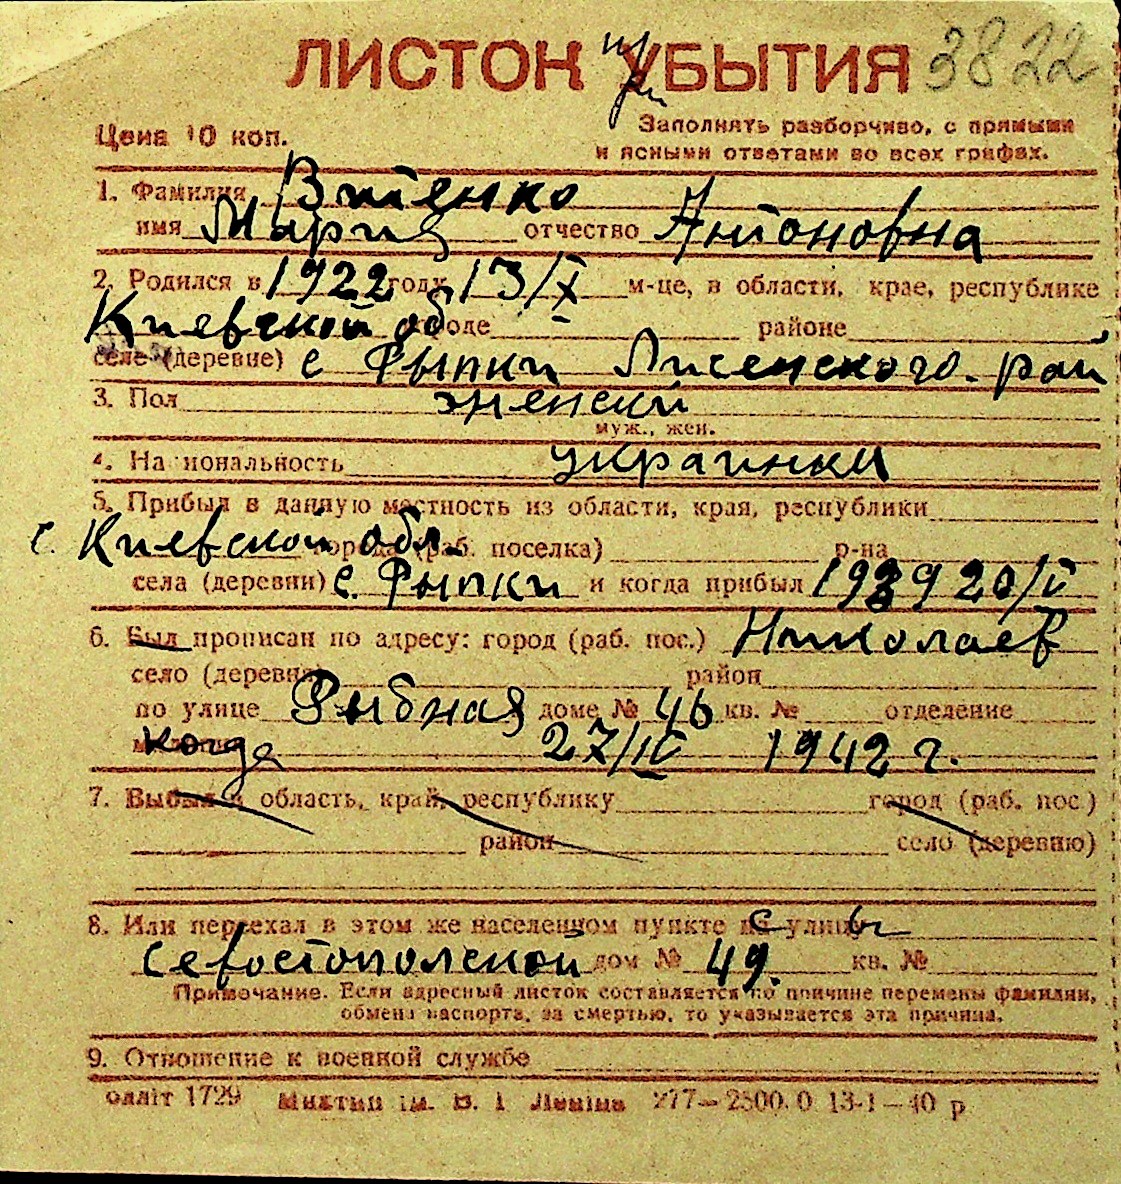 ЛИСТОК УБЫТИЯ 3822
при
Цена 10 коп. Заполнять разборчиво, с прямыми
и ясными ответами во всех графах.
1. Фамилия Витенко
имя Мария отчество Антоновна
2. Родился в 1922 году 13/X м-це, в области, крае, республике
Киевской об городе районе
селе (деревне) с Рыпки Лисенского рай
3. Пол женский
муж., жен.
4. Национальность украинка
5. Прибыл в данную местность из области, края, республики
с. Киевской обл. города (раб. поселка) р-на
села (деревни) с. Рыпки и когда прибыл 1939 20/V
6. Был прописан по адресу: город (раб. пос.) Николаев
село (деревня) район
по улице Рыбная доме № 46 кв. № отделение
когда 27/IV 1942 г.
7. Выбыл в область, край, республику город (раб. пос)
район село (деревню)
8. Или переехал в этом же населенном пункте с улицы
Севостополской дом № 49. кв. №
Примечание. Если адресный листок составляется по причине перемены фамилии,
обмена паспорта, за смертью, то указывается эта причина.
9. Отношение к военной службе
олліт 1729 Миктип ім. В. І Леніна 277—2500.0 13-1—40 р